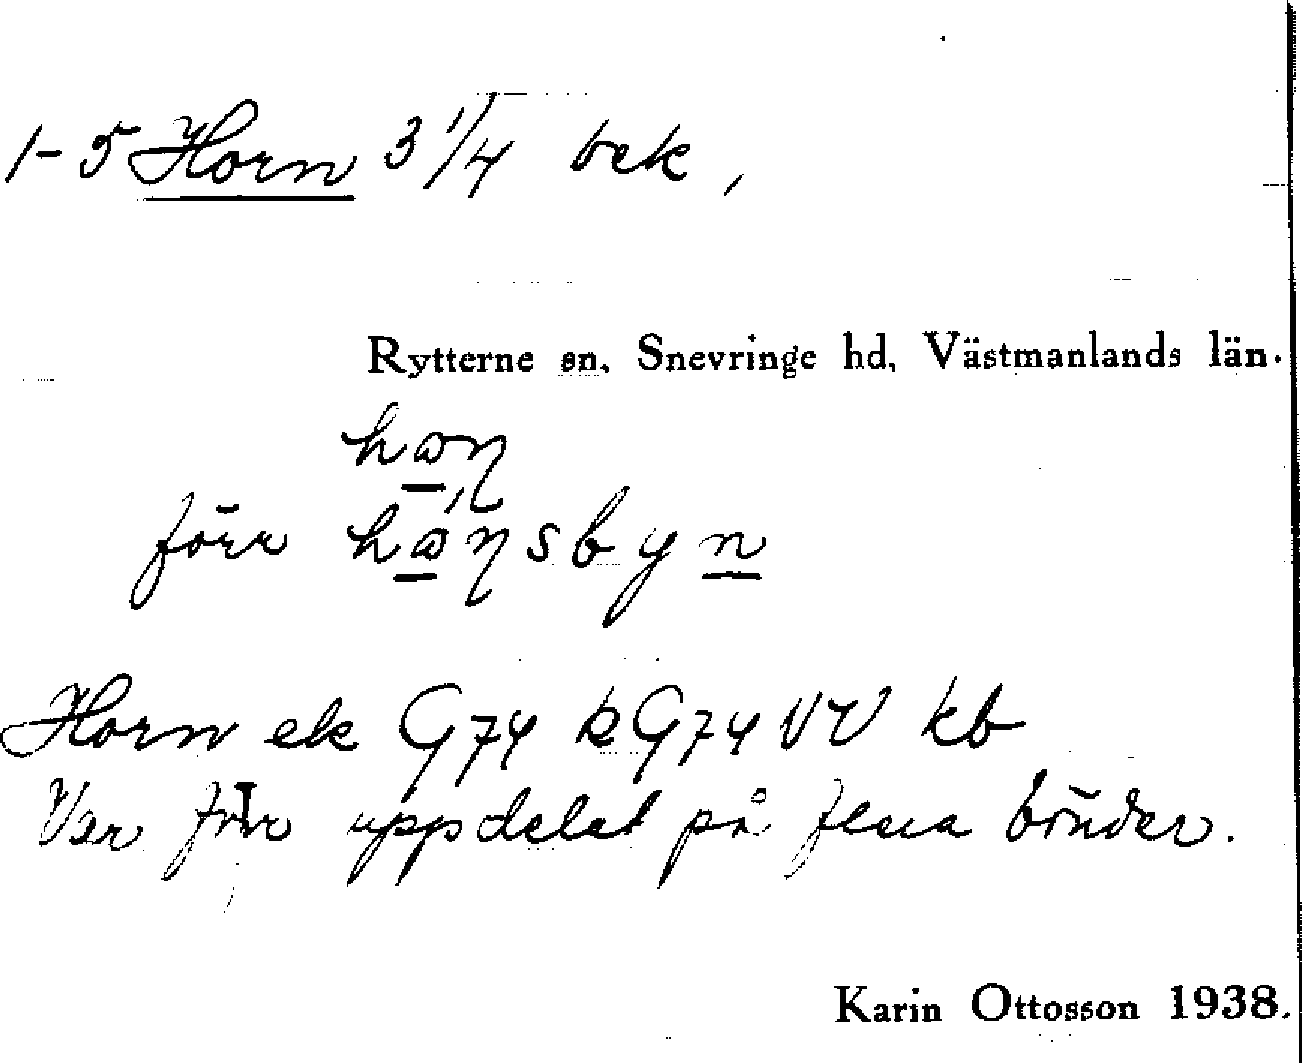 1-5 Horn 3 1/4 bek,
Rytterne sn, Snevringe hd, Västmanlands län.
förr
Horn ek G74 k G74 VV kb
Var förr uppdelat på flera bönder.
Karin Ottosson 1938.